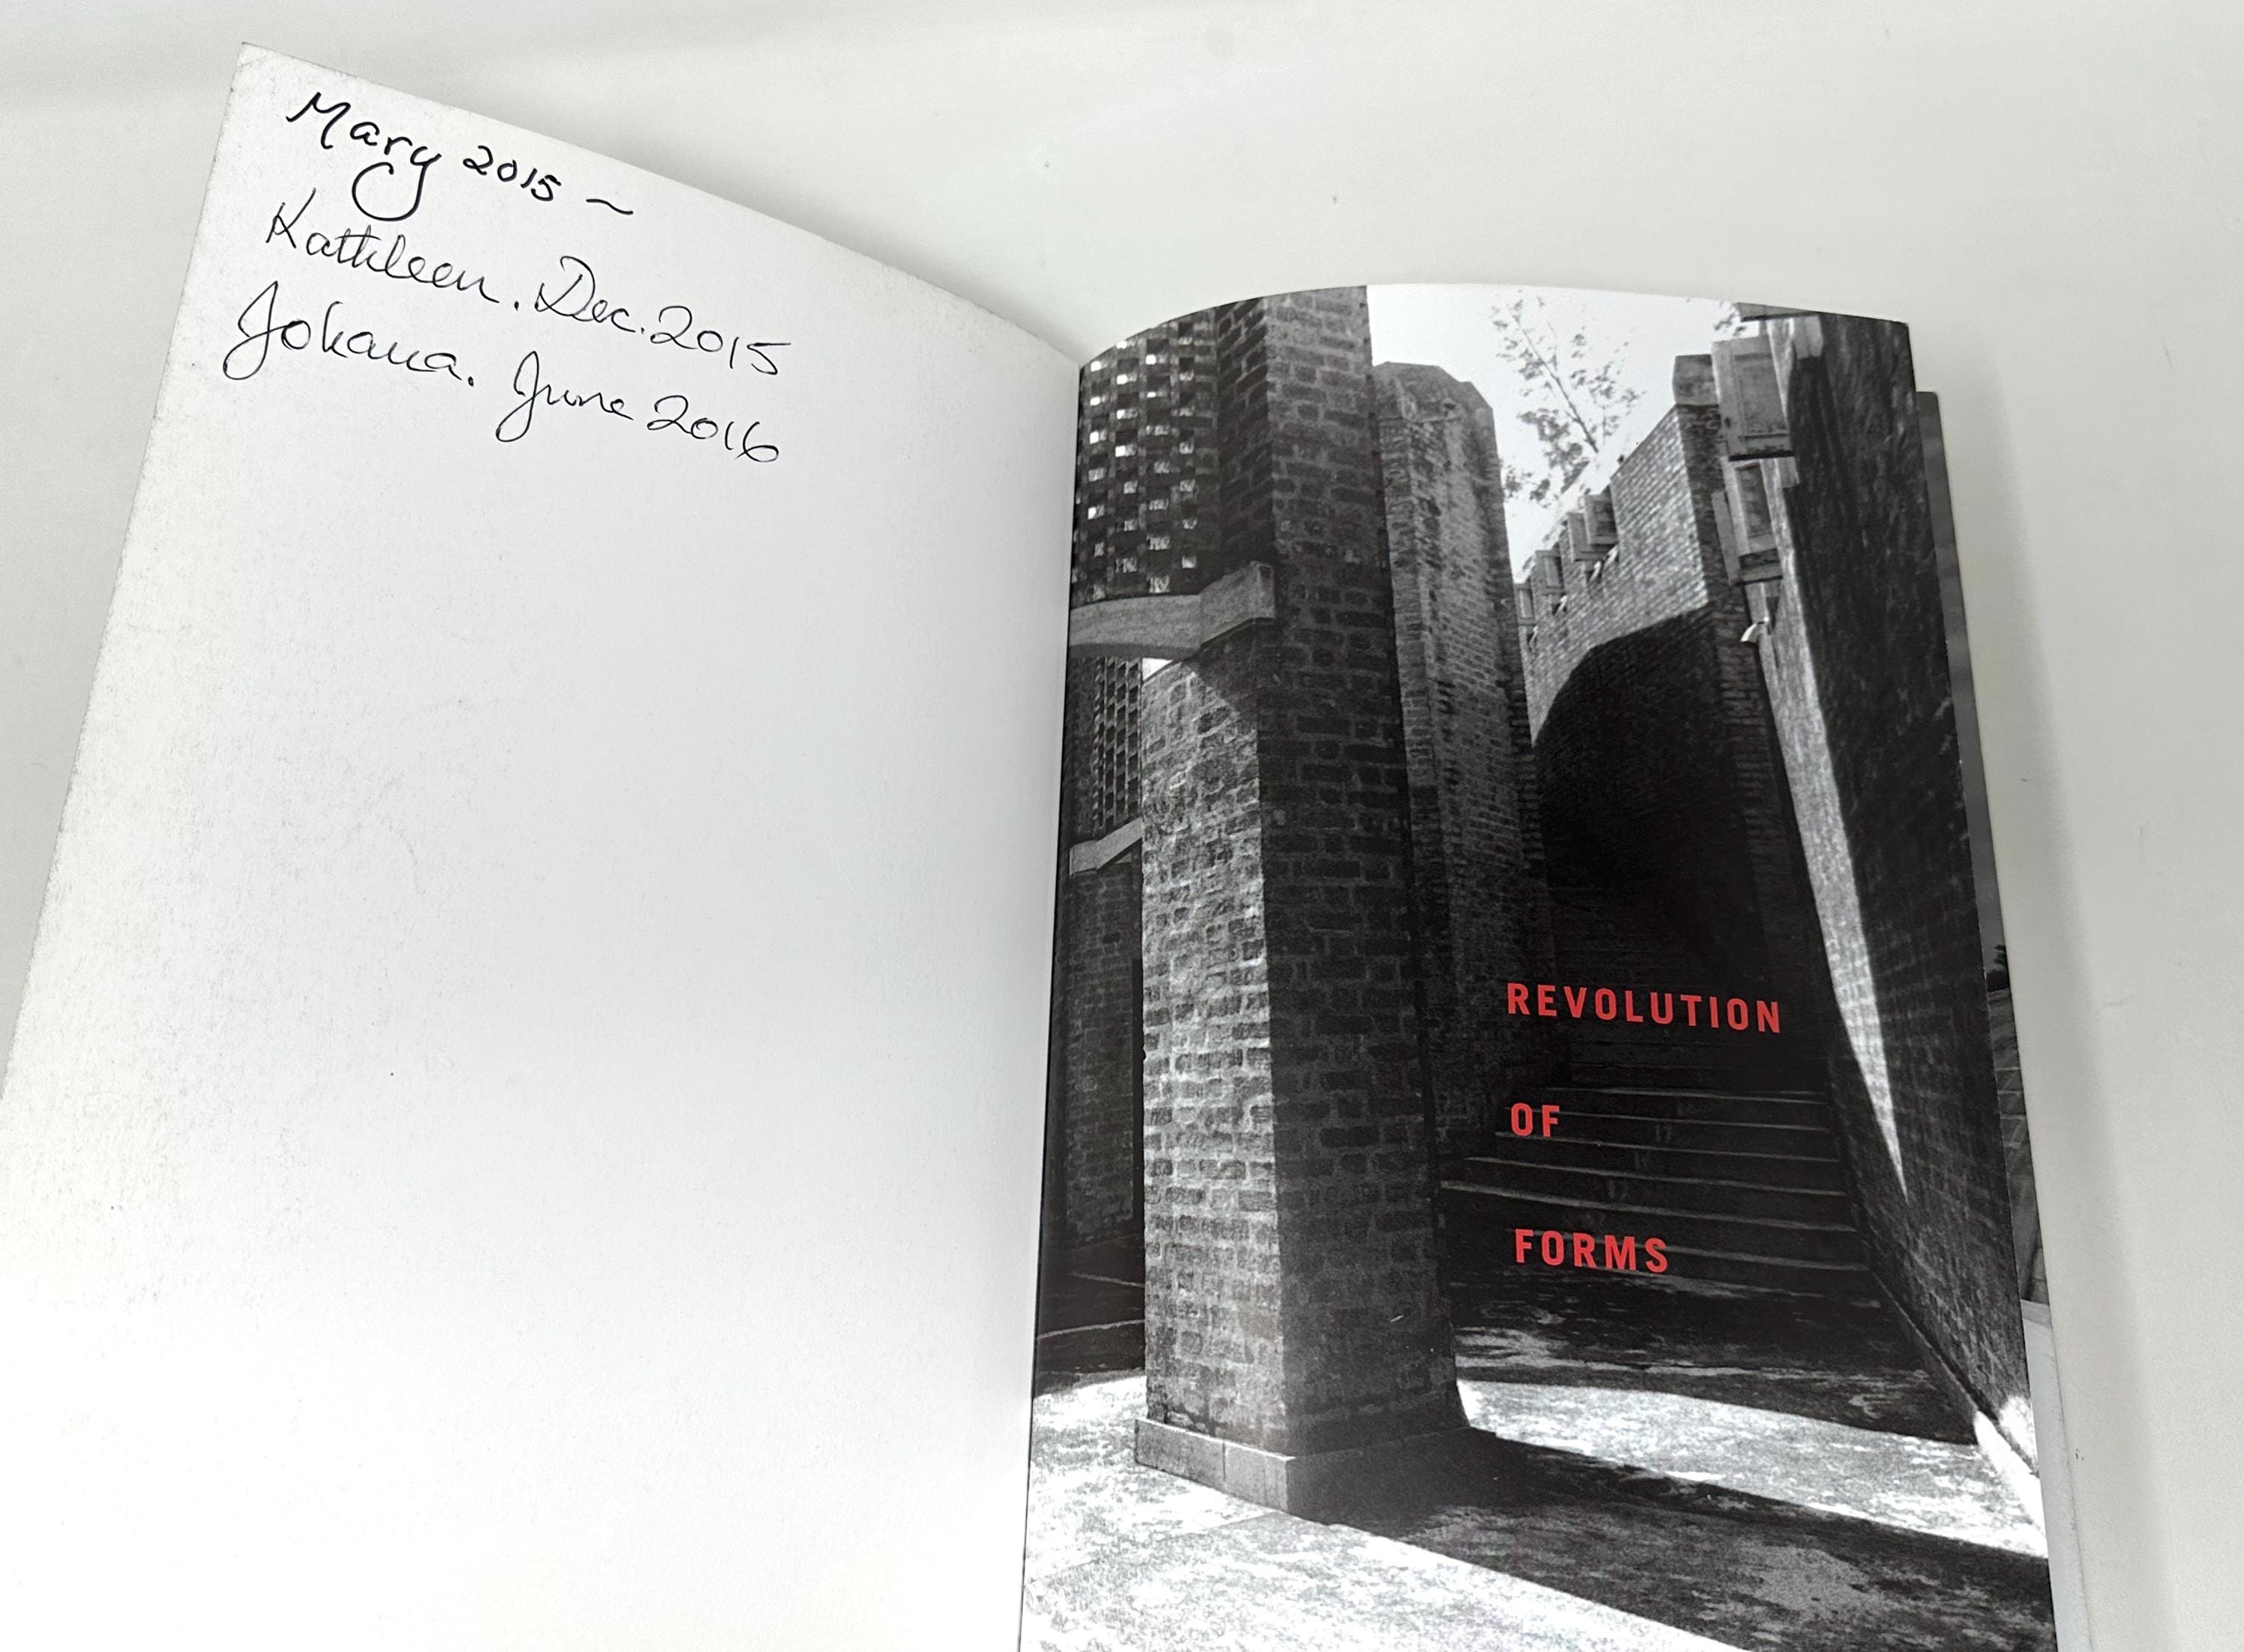 Mary 2015 ~
Kathleen. Dec. 2015
Johana. June 2016
REVOLUTION
OF
FORMS